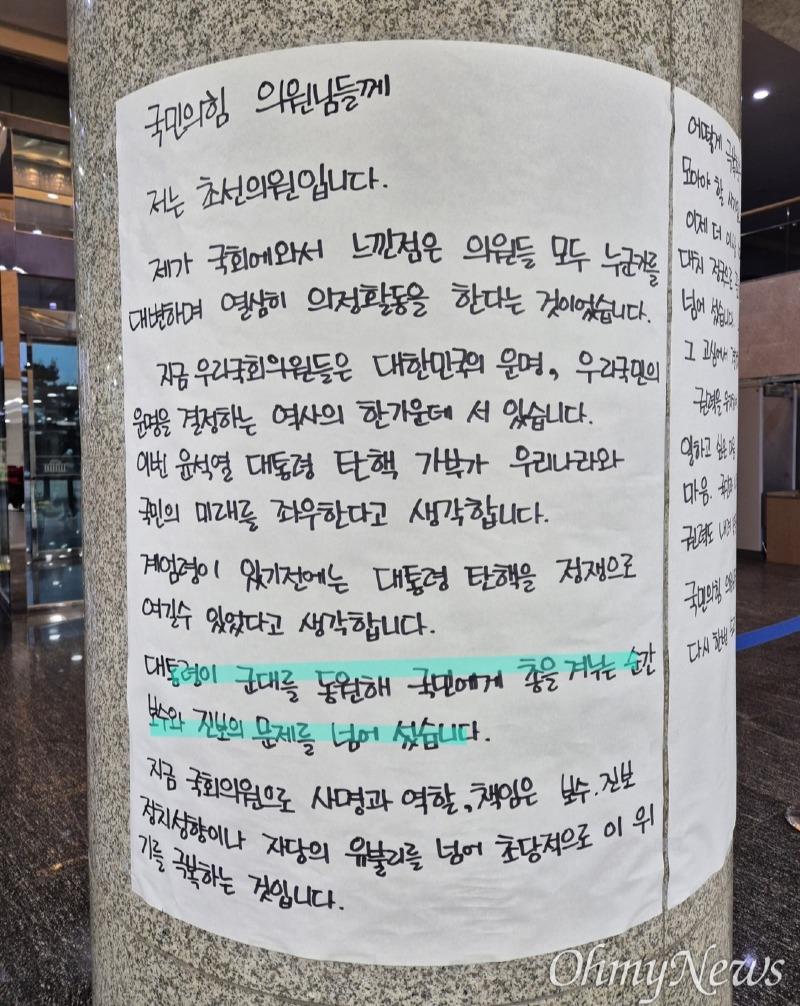 국민의힘 의원님들께
저는 초선의원입니다.
제가 국회에와서 느낀점은 의원들 모두 누군가를
대변하며 열심히 의정활동을 한다는 것이었습니다.
지금 우리국회의원들은 대한민국의 운명, 우리국민의
운명을 결정하는 역사의 한가운데 서 있습니다.
이번 윤석열 대통령 탄핵 가부가 우리나라와
국민의 미래를 좌우한다고 생각합니다.
계엄령이 있기전에는 대통령 탄핵을 정쟁으로
여길수 있었다고 생각합니다.
대통령이 군대를 동원해 국민에게 총을 겨눈 순간
보수와 진보의 문제를 넘어 섰습니다.
지금 국회의원으로 사명과 역할, 책임은 보수.진보
정치성향이나 자당의 유불리를 넘어 초당적으로 이 위
기를 극복하는 것입니다.
어떻게
모아야 할
이제 더 이상
대치 정국으로
넘어 섰습니다.
그 고심에서
권력을
일하고 싶은
마음.
권력도
국민의힘
다시 한번
OhmyNews